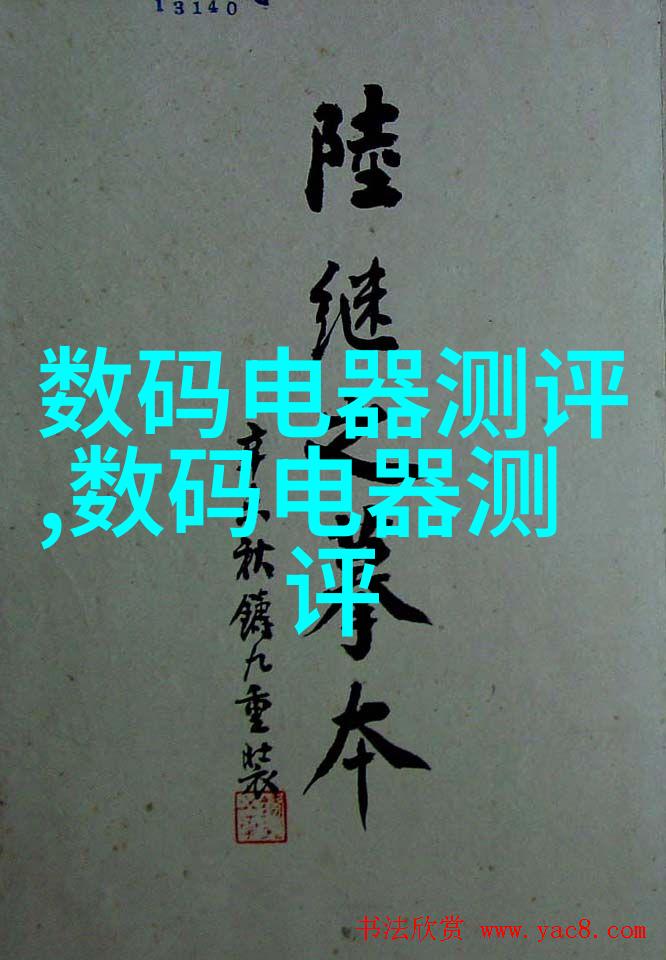 13140
陸继之摹本
数码电器测评
,数码电器测
评
秋鑄九重装
书法欣赏 www.yac8.com